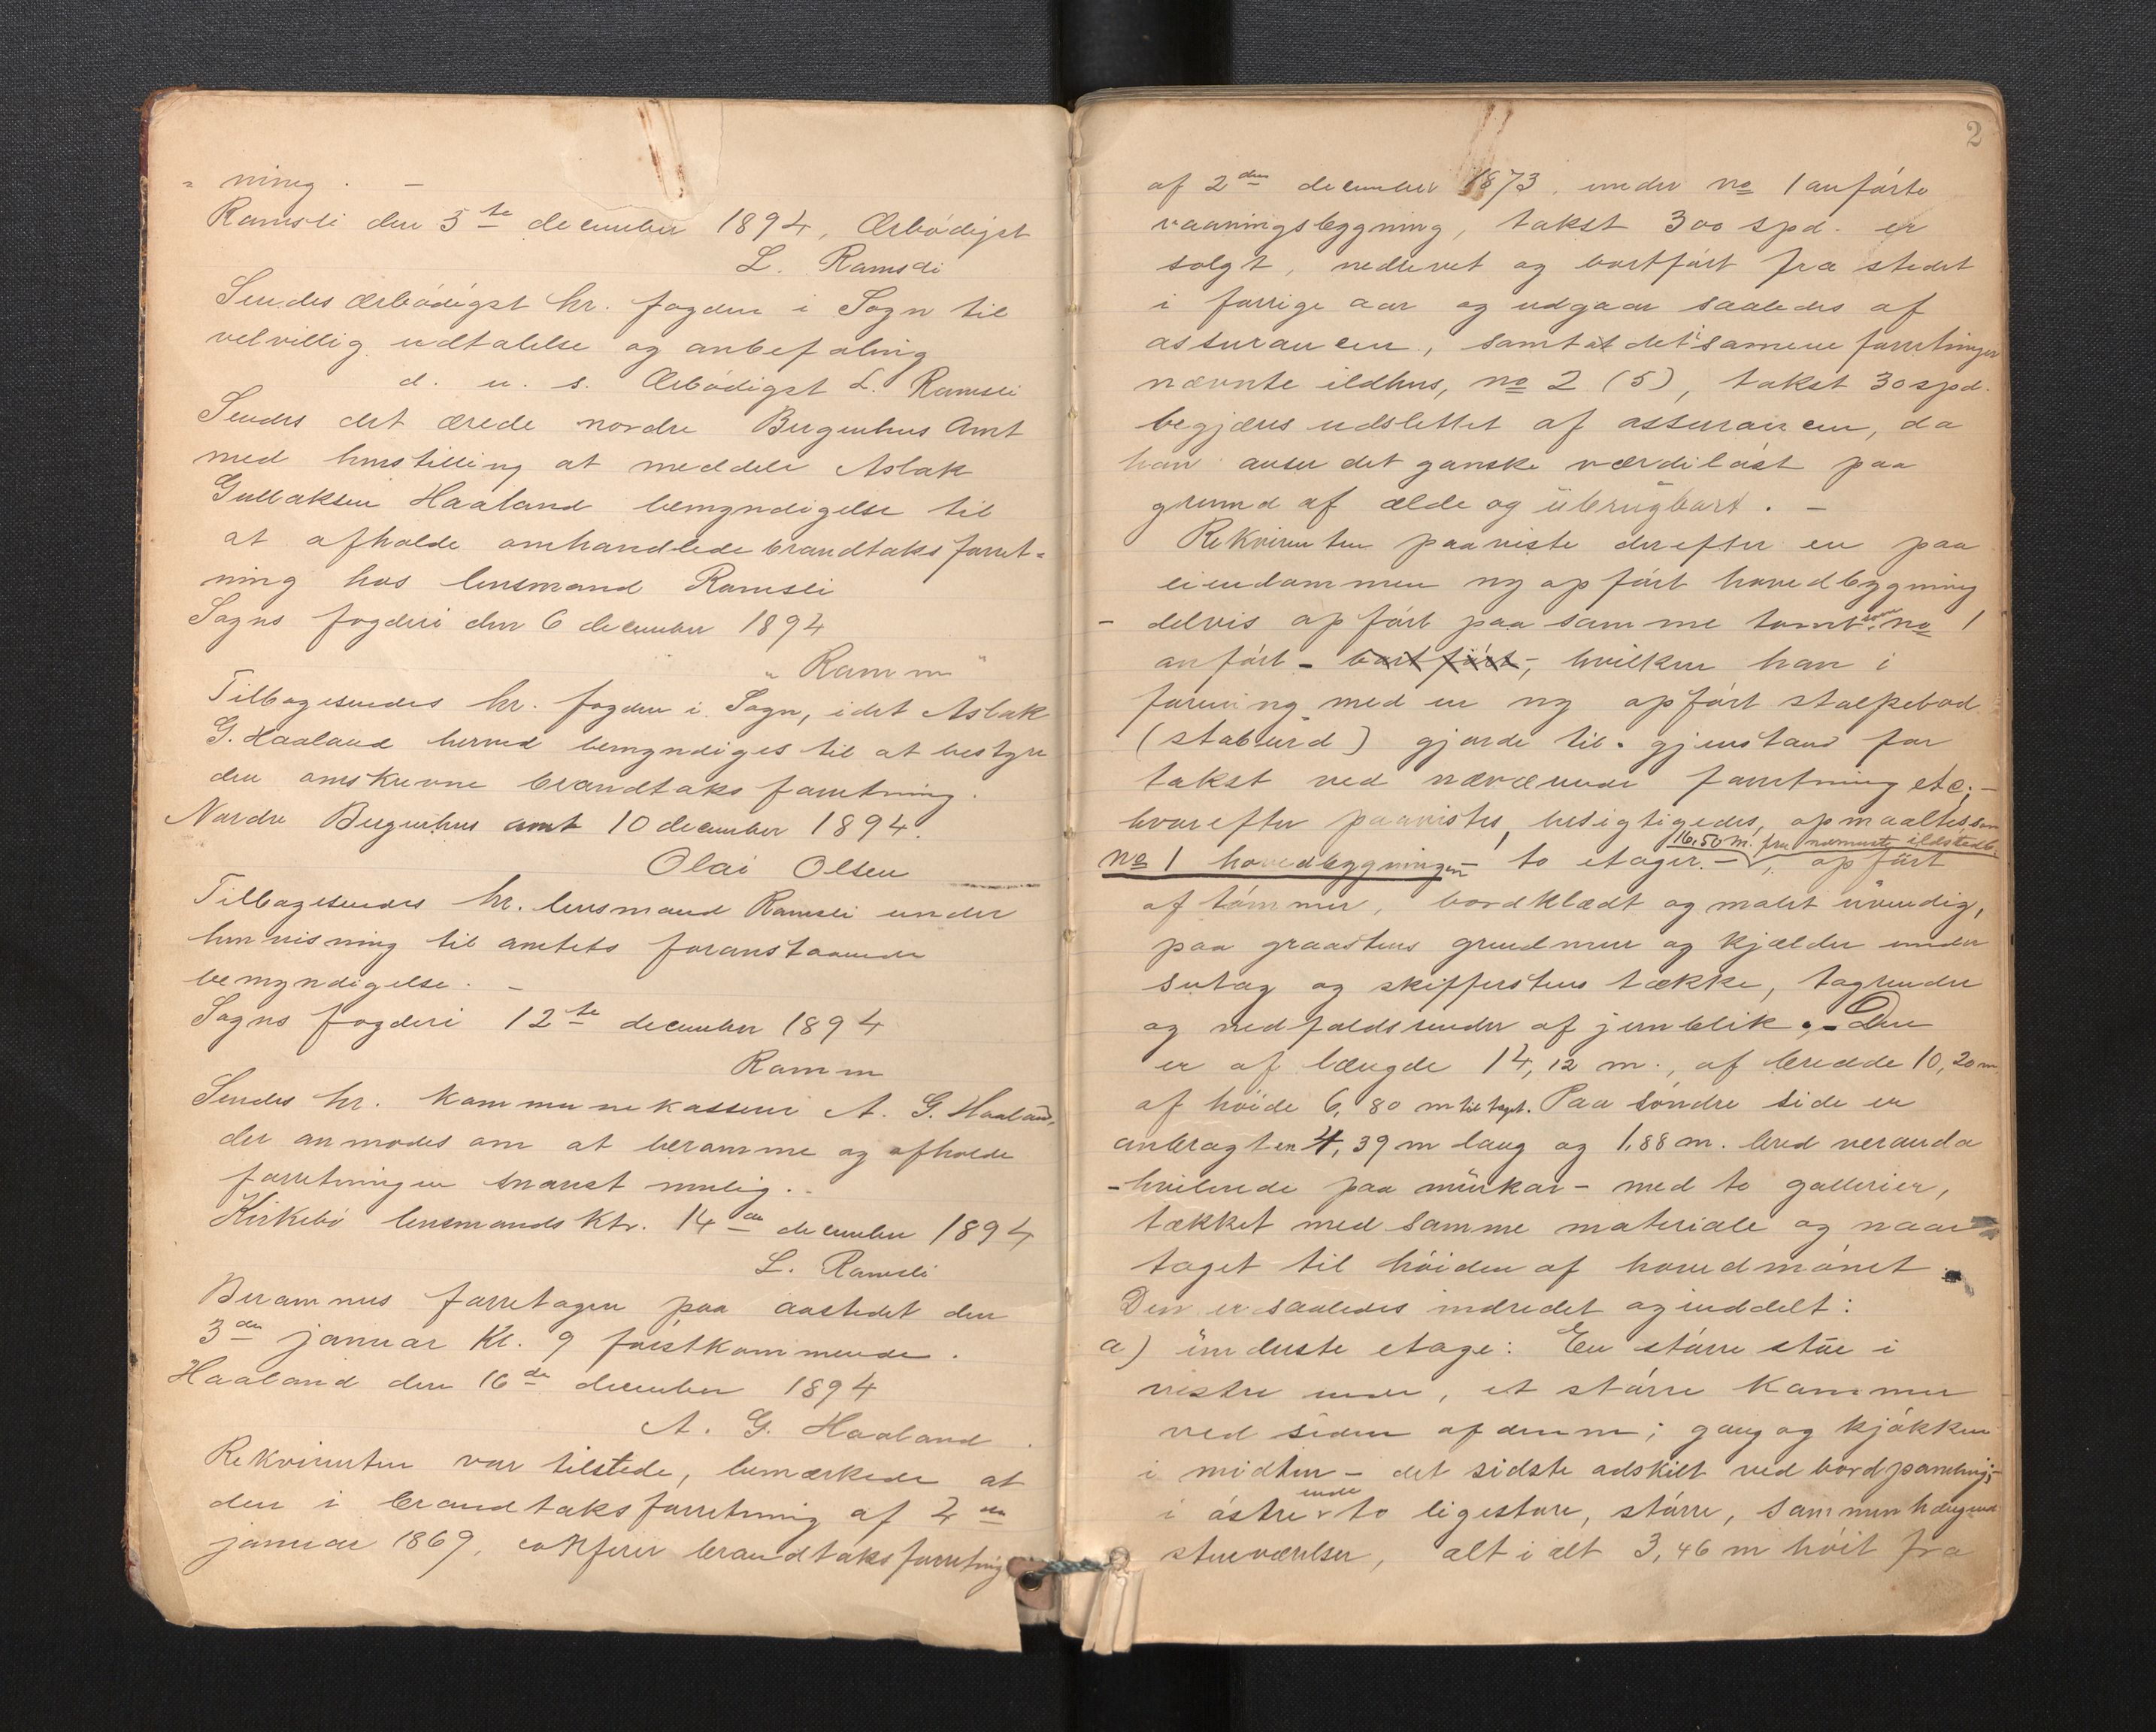 „ ning. –
Ramsli den 3te december 1894, Ærbødigst
L. Ramsli
Sendes ærbødigst hr. fogden i Sogn til
velvillig udtalelse og anbefaling
d. u. s. Ærbødigst L. Ramsli
Sendes det ærede nordre Bergenhus Amt
med henstilling at meddele Aslak
Gulbaksen Haaland bemyndigelse til
at afholde omhandlede brandtaksforret-
ning hos lensmand Ramsli
Sogns fogderi den 6 december 1894
„ Ramm "
Tilbagesendes hr. fogden i Sogn, idet Aslak
G. Haaland herved bemyndiges til at bestyre
den omskrevne brandtaksforretning.
Nordre Bergenhus amt 10 december 1894.
Olai Olsen
Tilbagesendes hr. lensmand Ramsli under
henvisning til amtets foranstaaende
bemyndigelse. –
Sogns fogderi 12te december 1894
Ramm
Sendes hr. kommunekasserer A. G. Haaland,
der anmodes om at beramme og afholde
forretningen snarest mulig.
Kirkebø lensmandsktr. 14de december 1894
L. Ramsli
Berammes foretagen paa aastedet den
3die januar Kl. 9 førstkommende.
Haaland den 16de december 1894
A. G. Haaland
Rekvirenten var tilstede, bemærkede at
den i brandtaksforretning af 4de
januar 1869, confererer brandtaksforretning
2
af 2den december 1873, under No 1 anførte
vaaningsbygning, takst 300 spd. er
solgt, nedrevet og bortført fra stedet
i forrige aar og udgaar saaledes af
assurancen, samt at det i samme forretninger
nævnte ildhus, No 2 (5), takst 30 spd.
begjæres udslettet af assurancen, da
han anser det ganske værdiløst paa
grund af ælde og ubrugbart. –
Rekvirenten paaviste derefter en paa
eiendommen ny opført hovedbygning
– delvis opført paa samme tomt som No 1
anført – bortført –, hvilken han i
forening med en ny opført stolpebod
(staburd) gjorde til gjenstand for
takst ved nærværende forretning etc; –
hvorefter paavistes, besigtigedes, opmaaltes som
16,50 m. fra nærmeste ildsted
No 1 hovedbygningen – to etager. –, opført
af tømmer, bordklædt og malet udvendig,
paa graastens grundmur og kjælder under
sutag og skifferstens tække, tagrender
og nedfaldsrender af jernblik. – Den
er af længde 14,12 m., af bredde 10,20 m.
af høide 6,80 m til taget. Paa søndre side er
anbragt en 4,39 m lang og 1,88 m. bred veranda
– hvilende paa murkar – med to gallerier,
tækket med samme materiale og naar
taget til høiden af hovedmønet.
Den er saaledes indredet og inddelt:
a) underste etage: En større stue i
vestre ende, et større kammer
ved siden af denne; gang og kjøkken
i midten – det sidste adskilt ved bordpanelning; –
i østre ende to ligestore, større, sammenhængende
stueværelser, alt i alt 3,46 m høit fra